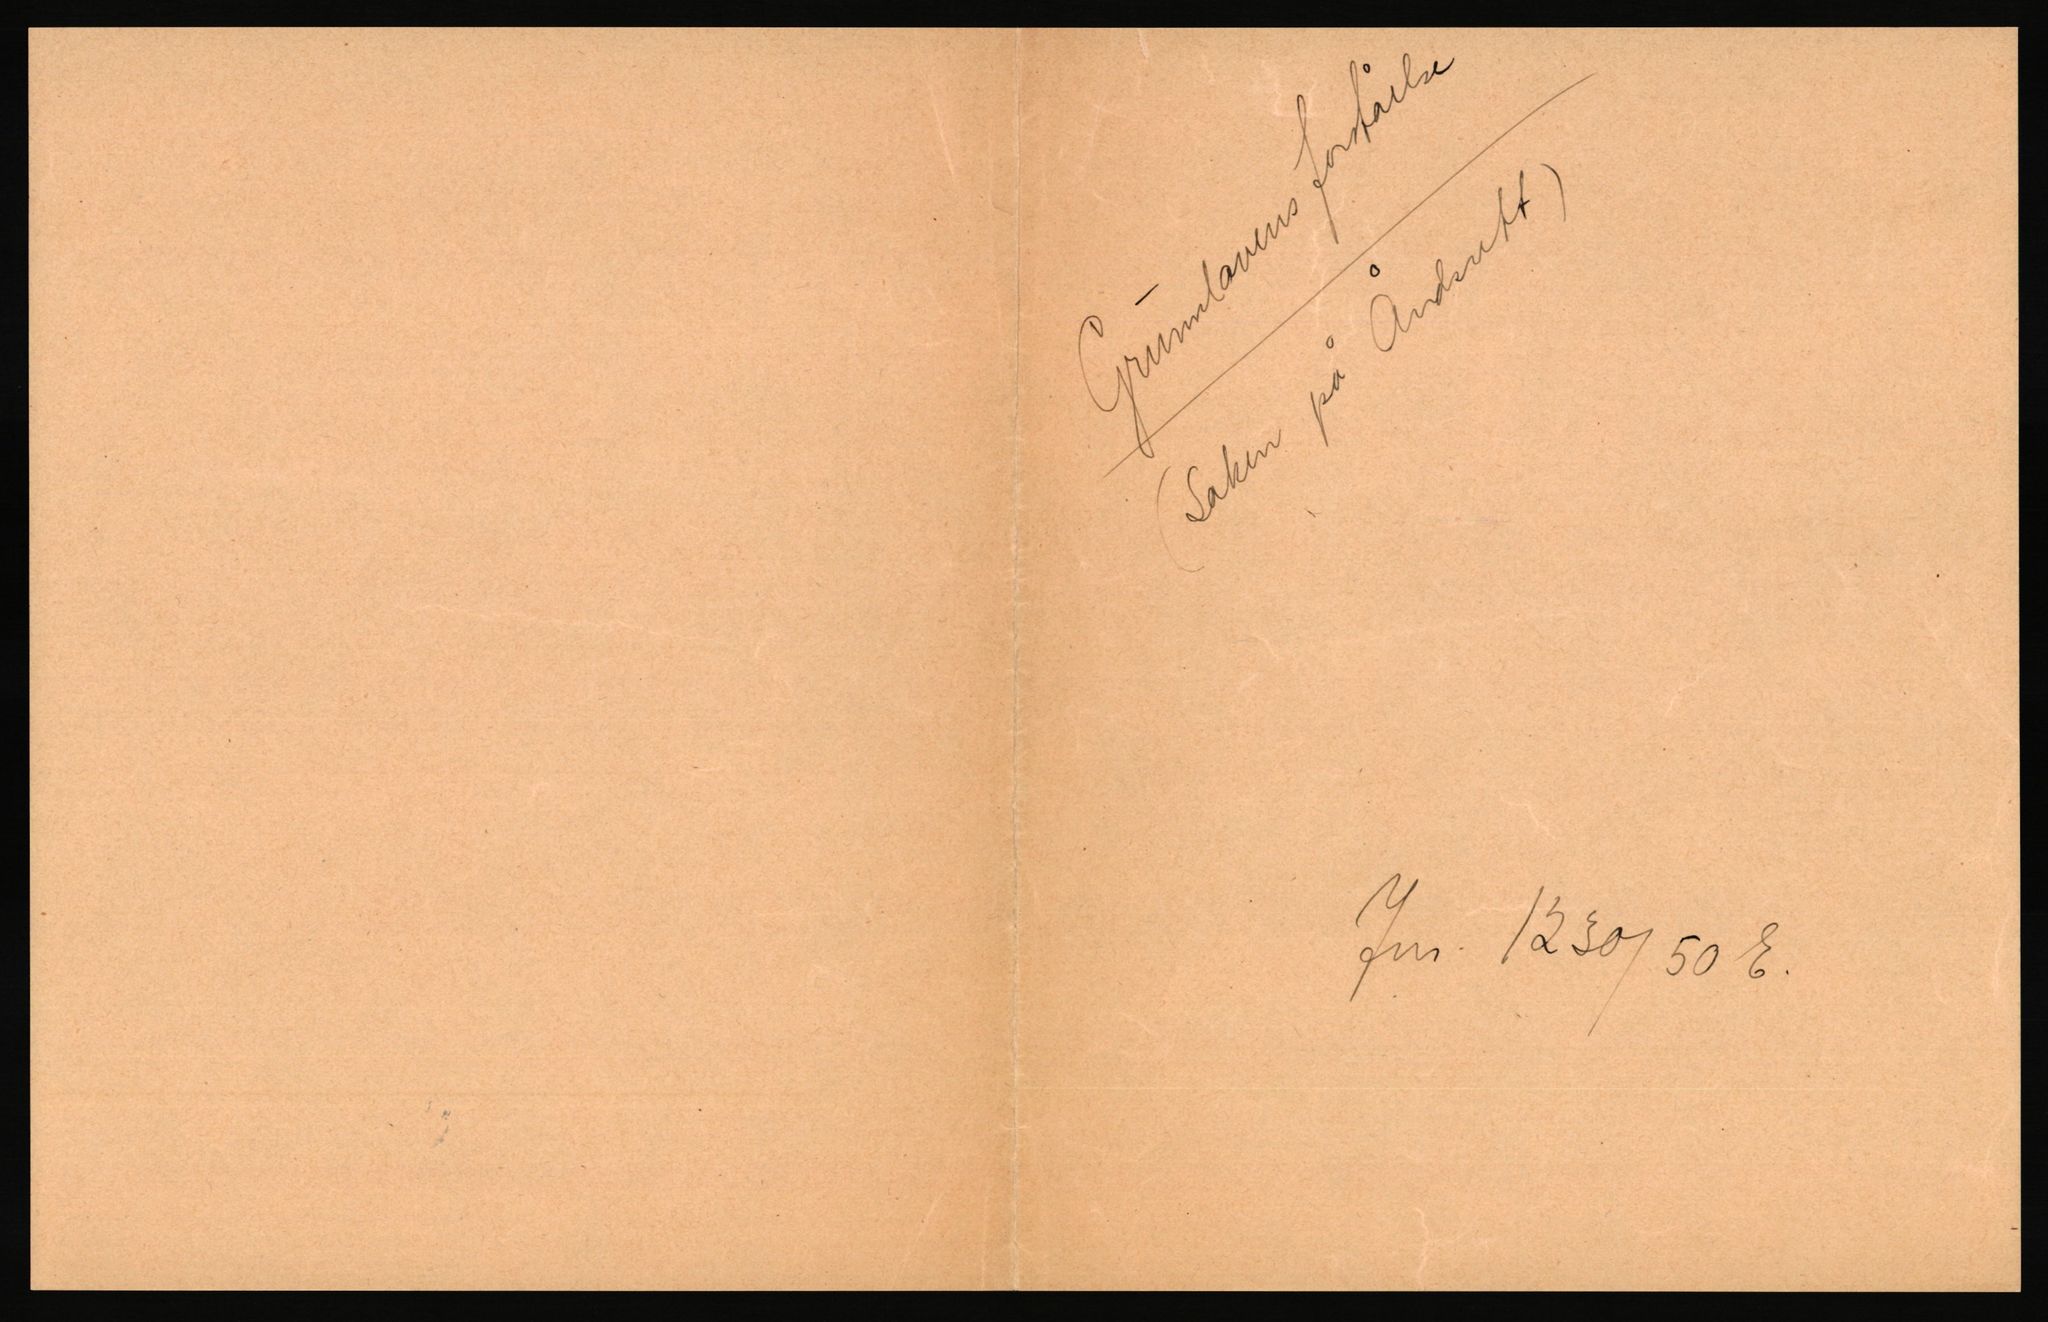 Grunnlovens forståelse
(Saken på Åndsrett)
Jnr. 1230/50 E.